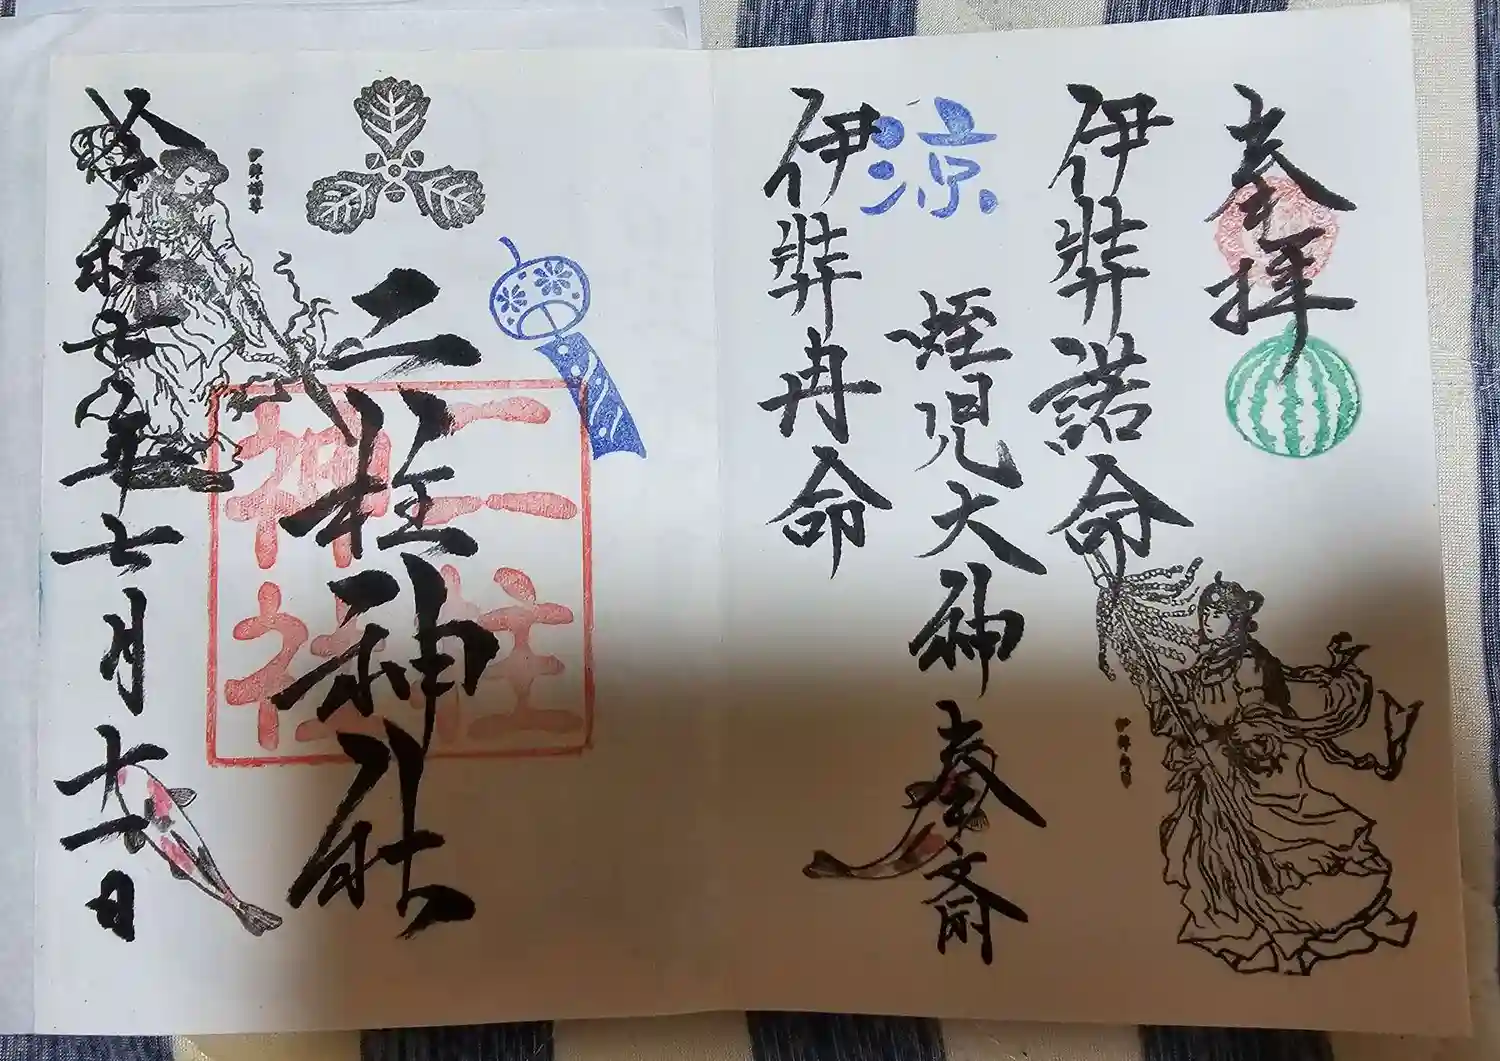 奉拝
伊弉諾命
涼
蛭児大神 奉斎
伊弉冉命
二柱神社
二柱
神社
令和六年七月十一日